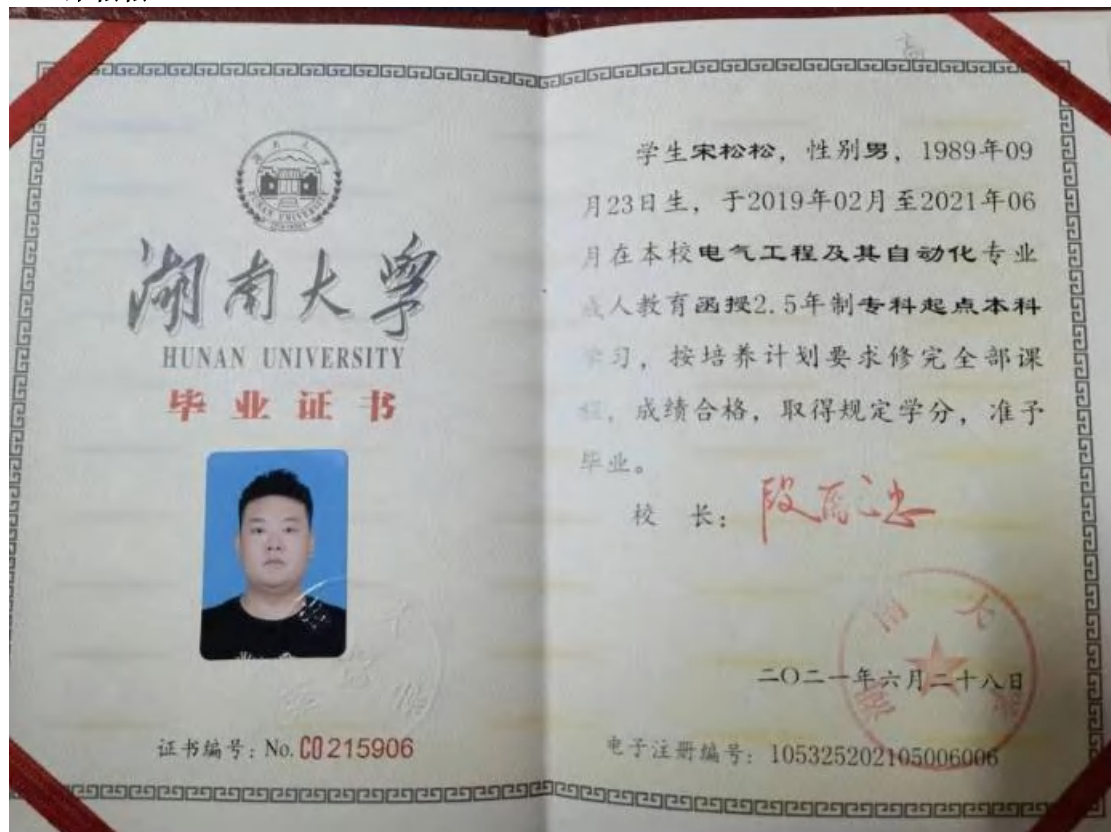 湖南大学
HUNAN UNIVERSITY
毕业证书
证书编号：No. C0215906
学生宋松松，性别男，1989年09
月23日生，于2019年02月至2021年06
月在本校电气工程及其自动化专业
成人教育函授2.5年制专科起点本科
学习，按培养计划要求修完全部课
程，成绩合格，取得规定学分，准予
毕业。
校 长：
二〇二一年六月二十八日
电子注册编号：105325202105006006